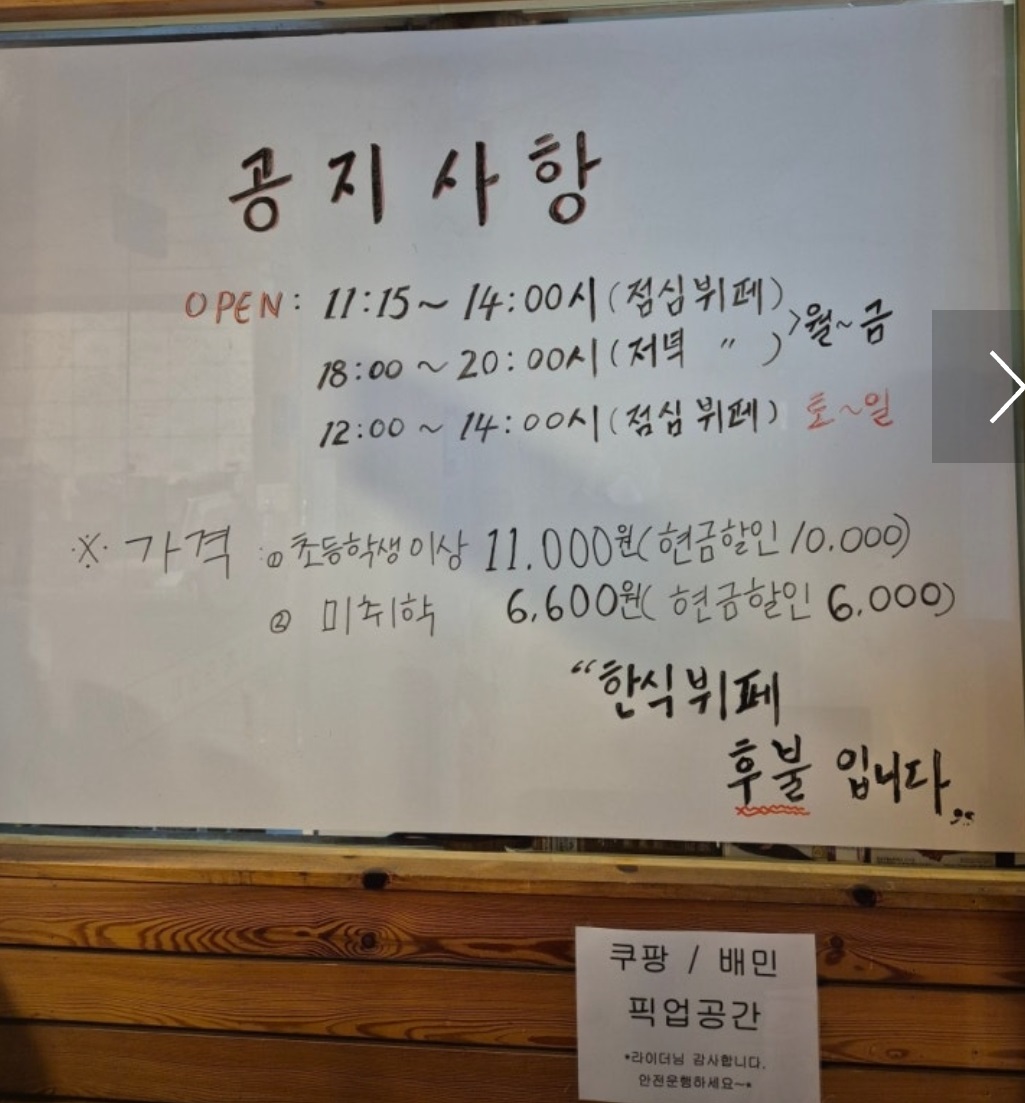 공지사항
OPEN: 11:15~14:00시(점심뷔페)
18:00~20:00시(저녁 〃 )>월~금
12:00~14:00시(점심뷔페) 토~일
※ 가격 : ① 초등학생이상 11.000원(현금할인 10.000)
② 미취학 6,600원(현금할인 6.000)
“한식뷔페
후불 입니다„
쿠팡 / 배민
픽업공간
*라이더님 감사합니다.
안전운행하세요~*